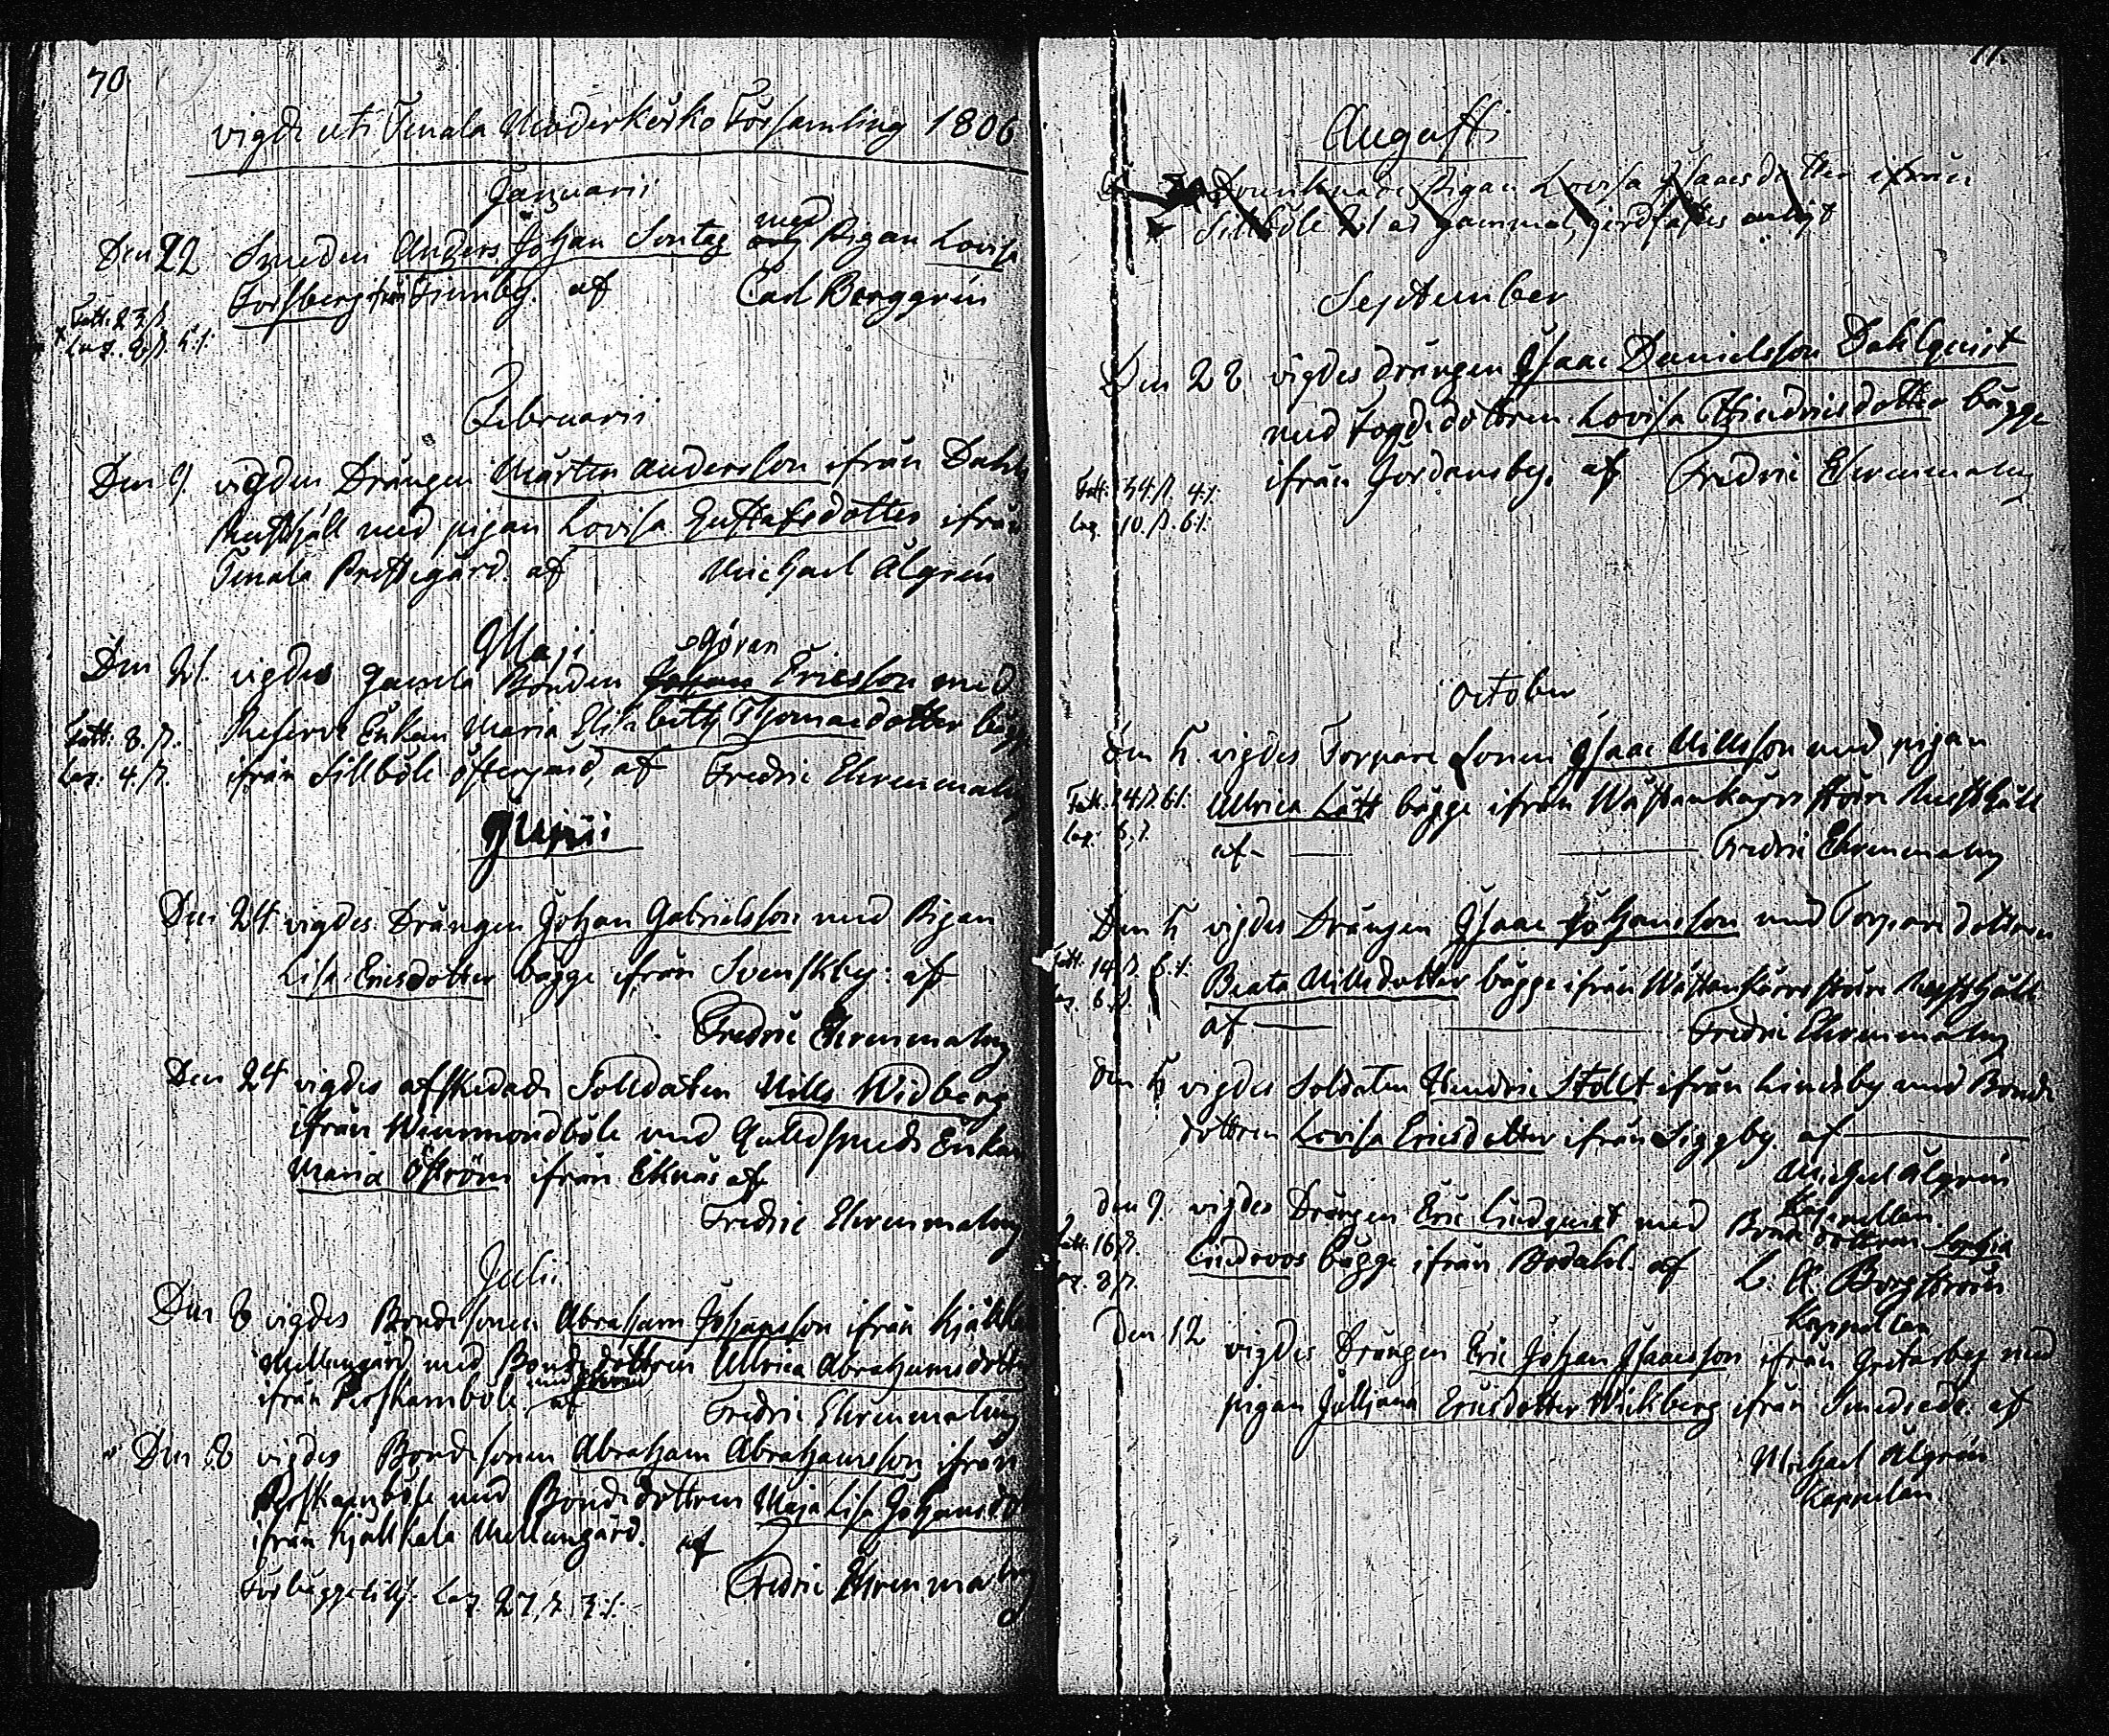 70
vigde uti Tenala Moderkörko Församling 1806
Januarii
Den 22 Smeden Anders Johan Sontag med Pigan Lovisa
Forsberg ifrån Finnby. af Carl Berggrén
Fatt. 23 /
Februarii
Den 9. vigden Drängen Mårten Andersson ifrån Dahls
Rusthåll med pigan Lovisa Gustafsdotter ifrån
Tenala Prestegård. af Michael Algrén
Maji
Göran
Den 21. vigdes gamla Bonden Johan Ericsson med
Reserve Enkan Maria Elisabeth Thomasdotter bägge
Fatt: 8. /.
Laz: 4. /.
ifrån Sillböle öftergård, af Fredric Ehrenmalm
Junii
Den 24. vigdes Drängen Johan Gabrielsson med Pigan
Lisa Ericsdotter bägge ifrån Svenskby: af
Fredric Ehrenmalm
Den 24 vigdes afskedade Solldaten Nills Widberg
ifrån Wermondböle med Gulldsmeds Enkan
Maria Öström ifrån Eknäs af
Fredric Ehrenmalm
Julii
Den 8 vigdes Bondesonen Abraham Johansson ifrån Kjällkala
Mellangård med Bondedottren Ullrica Abrahamsdotter
ifrån Perskamböle af Fredric Ehrenmalm
Den 8 vigdes Bondesonen Abraham Abrahamsson ifrån
Perskamböle med Bondedottren Maja Lisa Johansdot
ifrån Kjällkala Mellangård. af
Fredric Ehrenmalm
Laz. 27
Augusti
Pigan Lovisa Isaacsdotter ifrån
Sillböle
September
Den 28 vigdes drängen Isaac Danielsson Dahlquist
med Fogdedottren Lovisa Hindricsdotter bägge
ifrån Jordansby. af Fredric Ehrenmalm
Fatt. 34. /. 4. /.
Laz. 10. /. 6. /.
October
den 5. vigdes Torpare sonen Isaac Nillsson med pigan
Ullrica Lått bägge ifrån Wästankärr störe Rusthåll
af Fredric Ehrenmalm
Den 5 vigdes Drängen Isaac Johansson med Torparedottren
Fatt. 14
Beata Nillsdotter bägge ifrån Wästankärr störe Rusthåll
af Fredric Ehrenmalm
den 5 vigdes Soldaten Hindric Stollt ifrån Lindsby med Bonde
dottren Lovisa Ericsdotter ifrån Siggby. af
Michael Algrén
Kapellan.
den 9. vigdes Drängen Eric Lindquist med Bondedottren Sophia
Fatt. 16
Lindroos bägge ifrån Bodahl. af L. A. Borgström
Kappellan
Den 12 vigdes Drängen Eric Johan Isaacsson ifrån Gretarby med
pigan Julljana Ericsdotter Wickberg ifrån Smedsede. af
Michael Algrén
Kappelan.